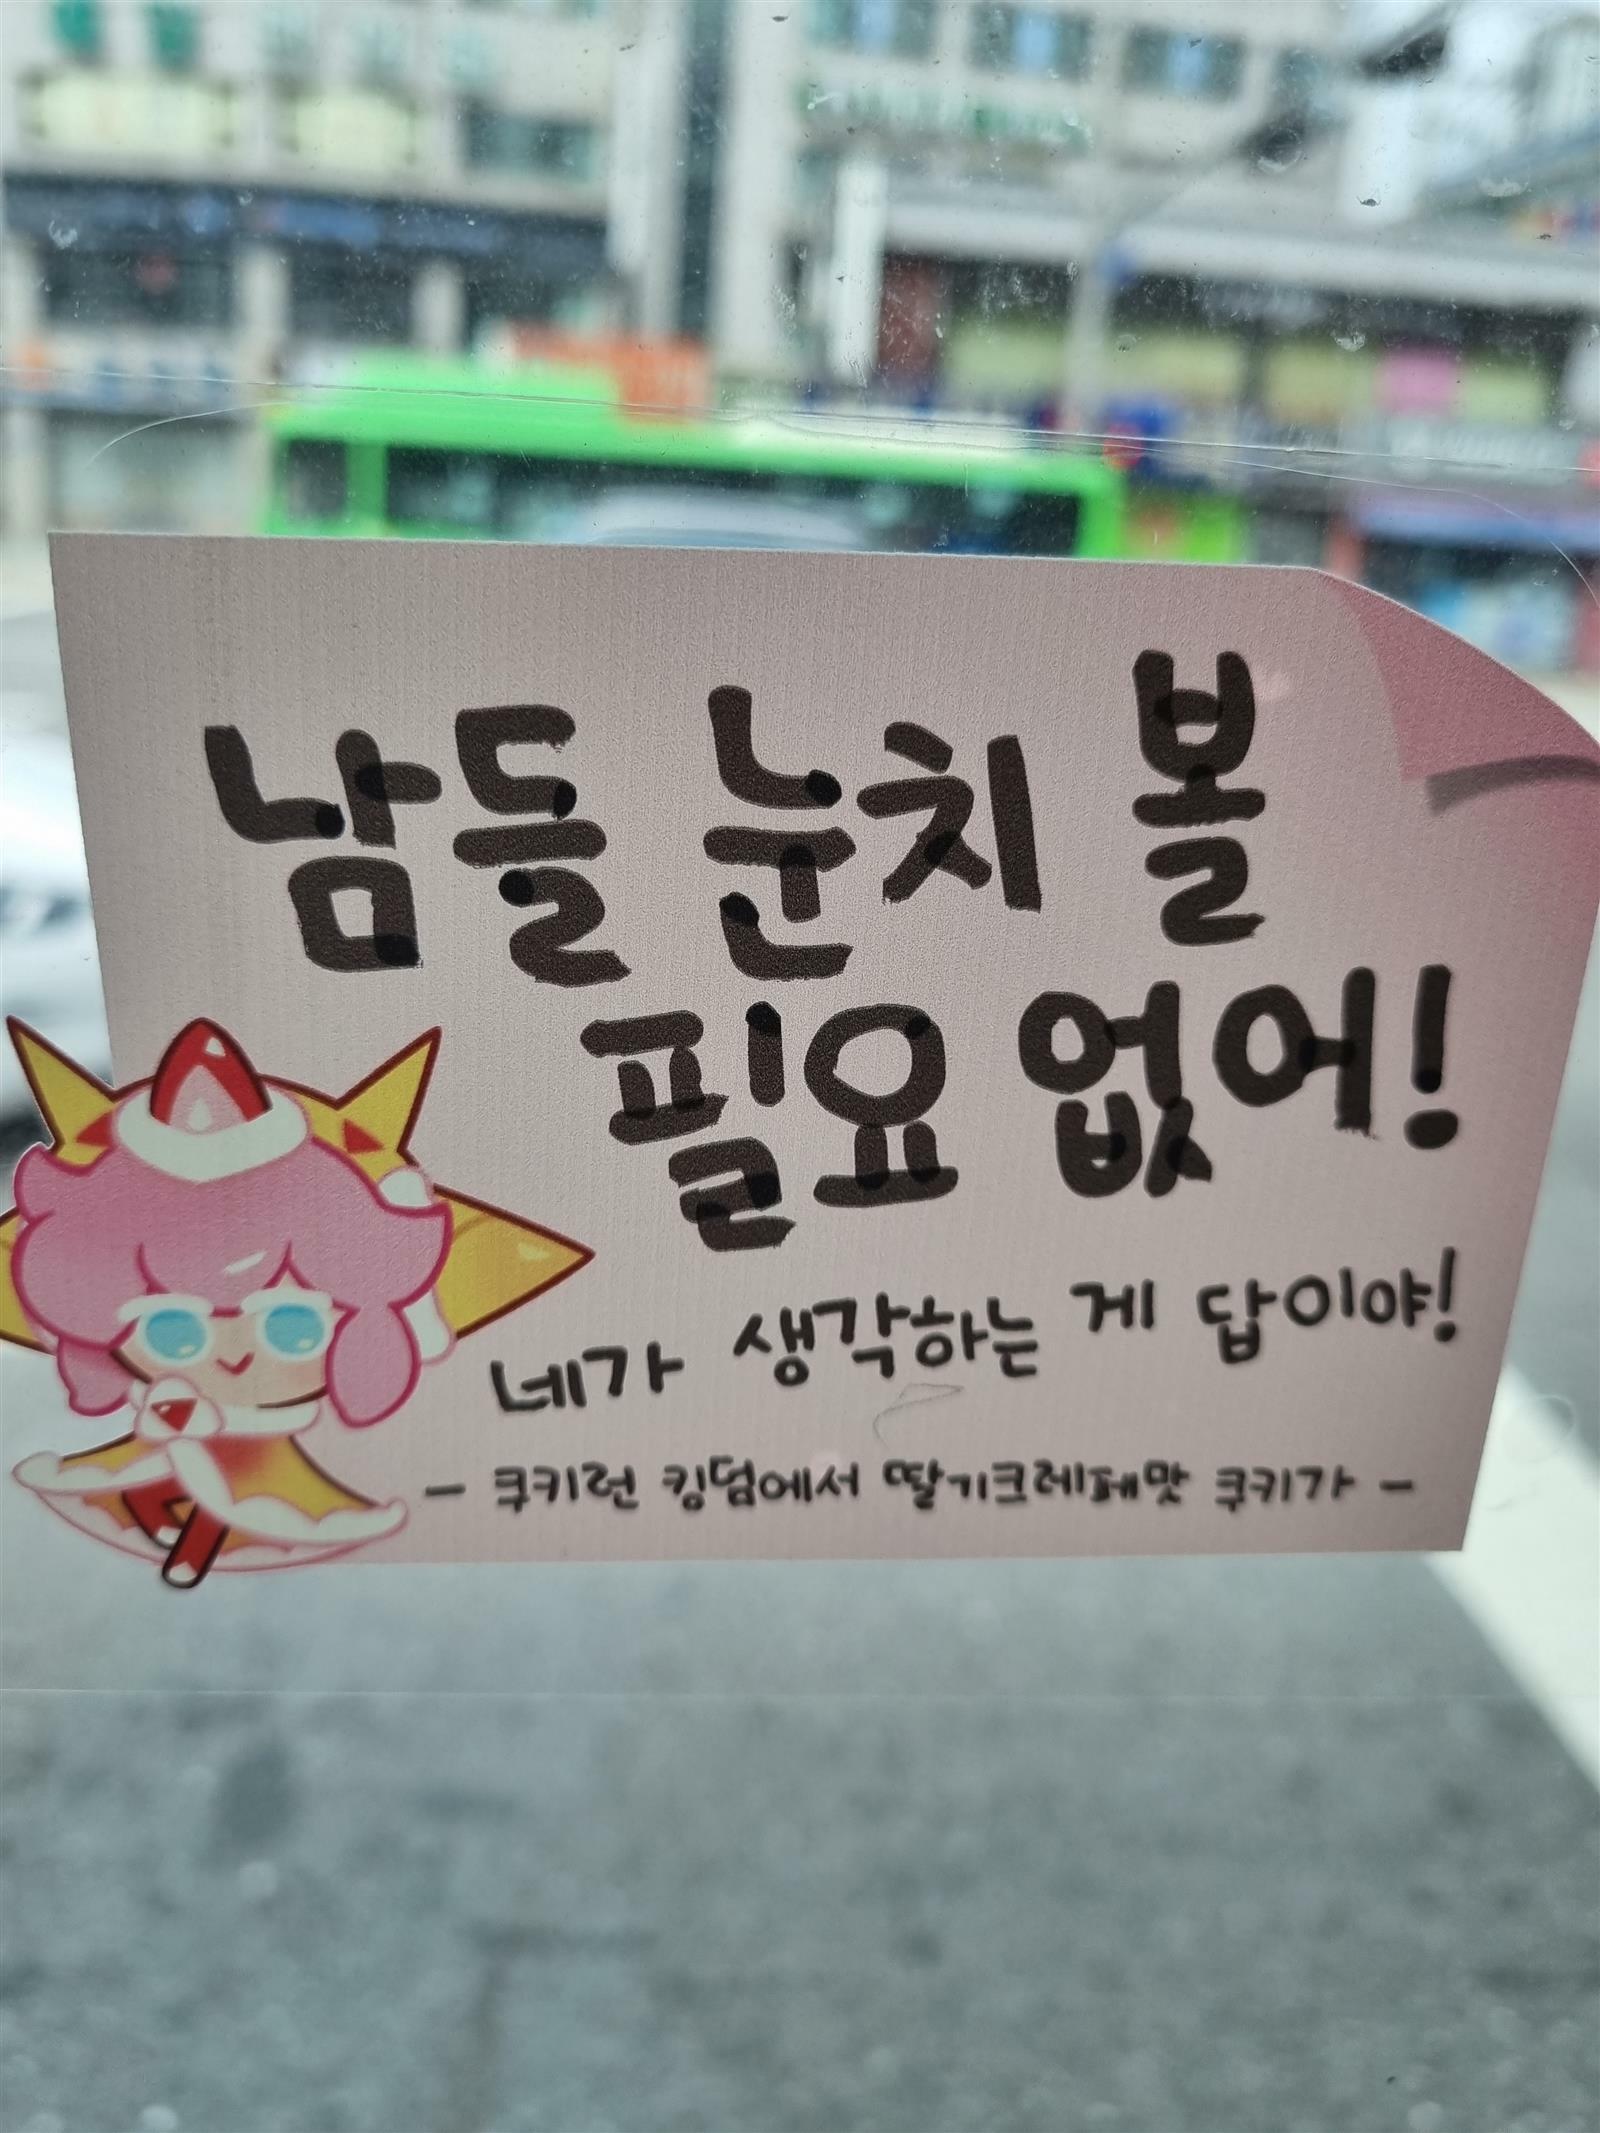 남들 눈치 볼
필요 없어!
네가 생각하는 게 답이야!
- 쿠키런 킹덤에서 딸기크레페맛 쿠키가 -